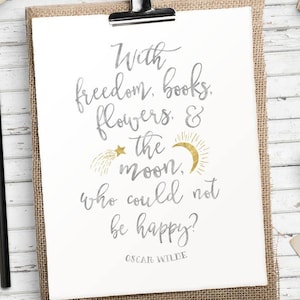 With
freedom, books,
flowers, &
the
moon,
who could not
be happy?
OSCAR WILDE